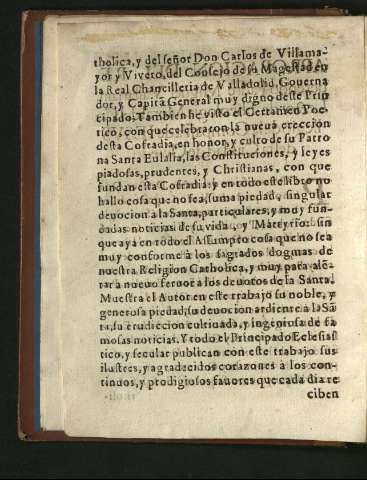 tholica, y del señor Don Carlos de Villama-
yor y Vivero, del Consejo de su Magestad en
la Real Chancilleria de Valladolid, Governa
dor, y Capitã General muy digno deste Prin
cipado: Tambien he visto el Certamen Poe-
tico, con que celebraron la nueva ereccion
desta Cofradia, en honor, y culto de su Patro
na Santa Eulalia, las Constituciones, y leyes
piadosas, prudentes, y Christianas, con que
fundan esta Cofradia: y en todo este libro no
hallo cosa que no sea, suma piedad, singular
devocion a la Santa, particulares, y muy fun-
dadas noticias de su vida, y Martyrio: sin
que aya en todo el Assumpto cosa que no sea
muy conforme à los sagrados dogmas de
nuestra Religion Catholica, y muy para alẽ-
tar à nuevo fervor à los devotos de la Santa.
Muestra el Autor en este trabajo su noble, y
generosa piedad, su devocion ardiente à la Sã
ta, su erudiccion cultivada, y ingeniosa de fa
mosas noticias. Y todo el Principado Eclesias
tico, y secular publican con este trabajo sus
ilustres, y agradecidos corazones à los con-
tinuos, y prodigiosos favores que cada dia re
ciben